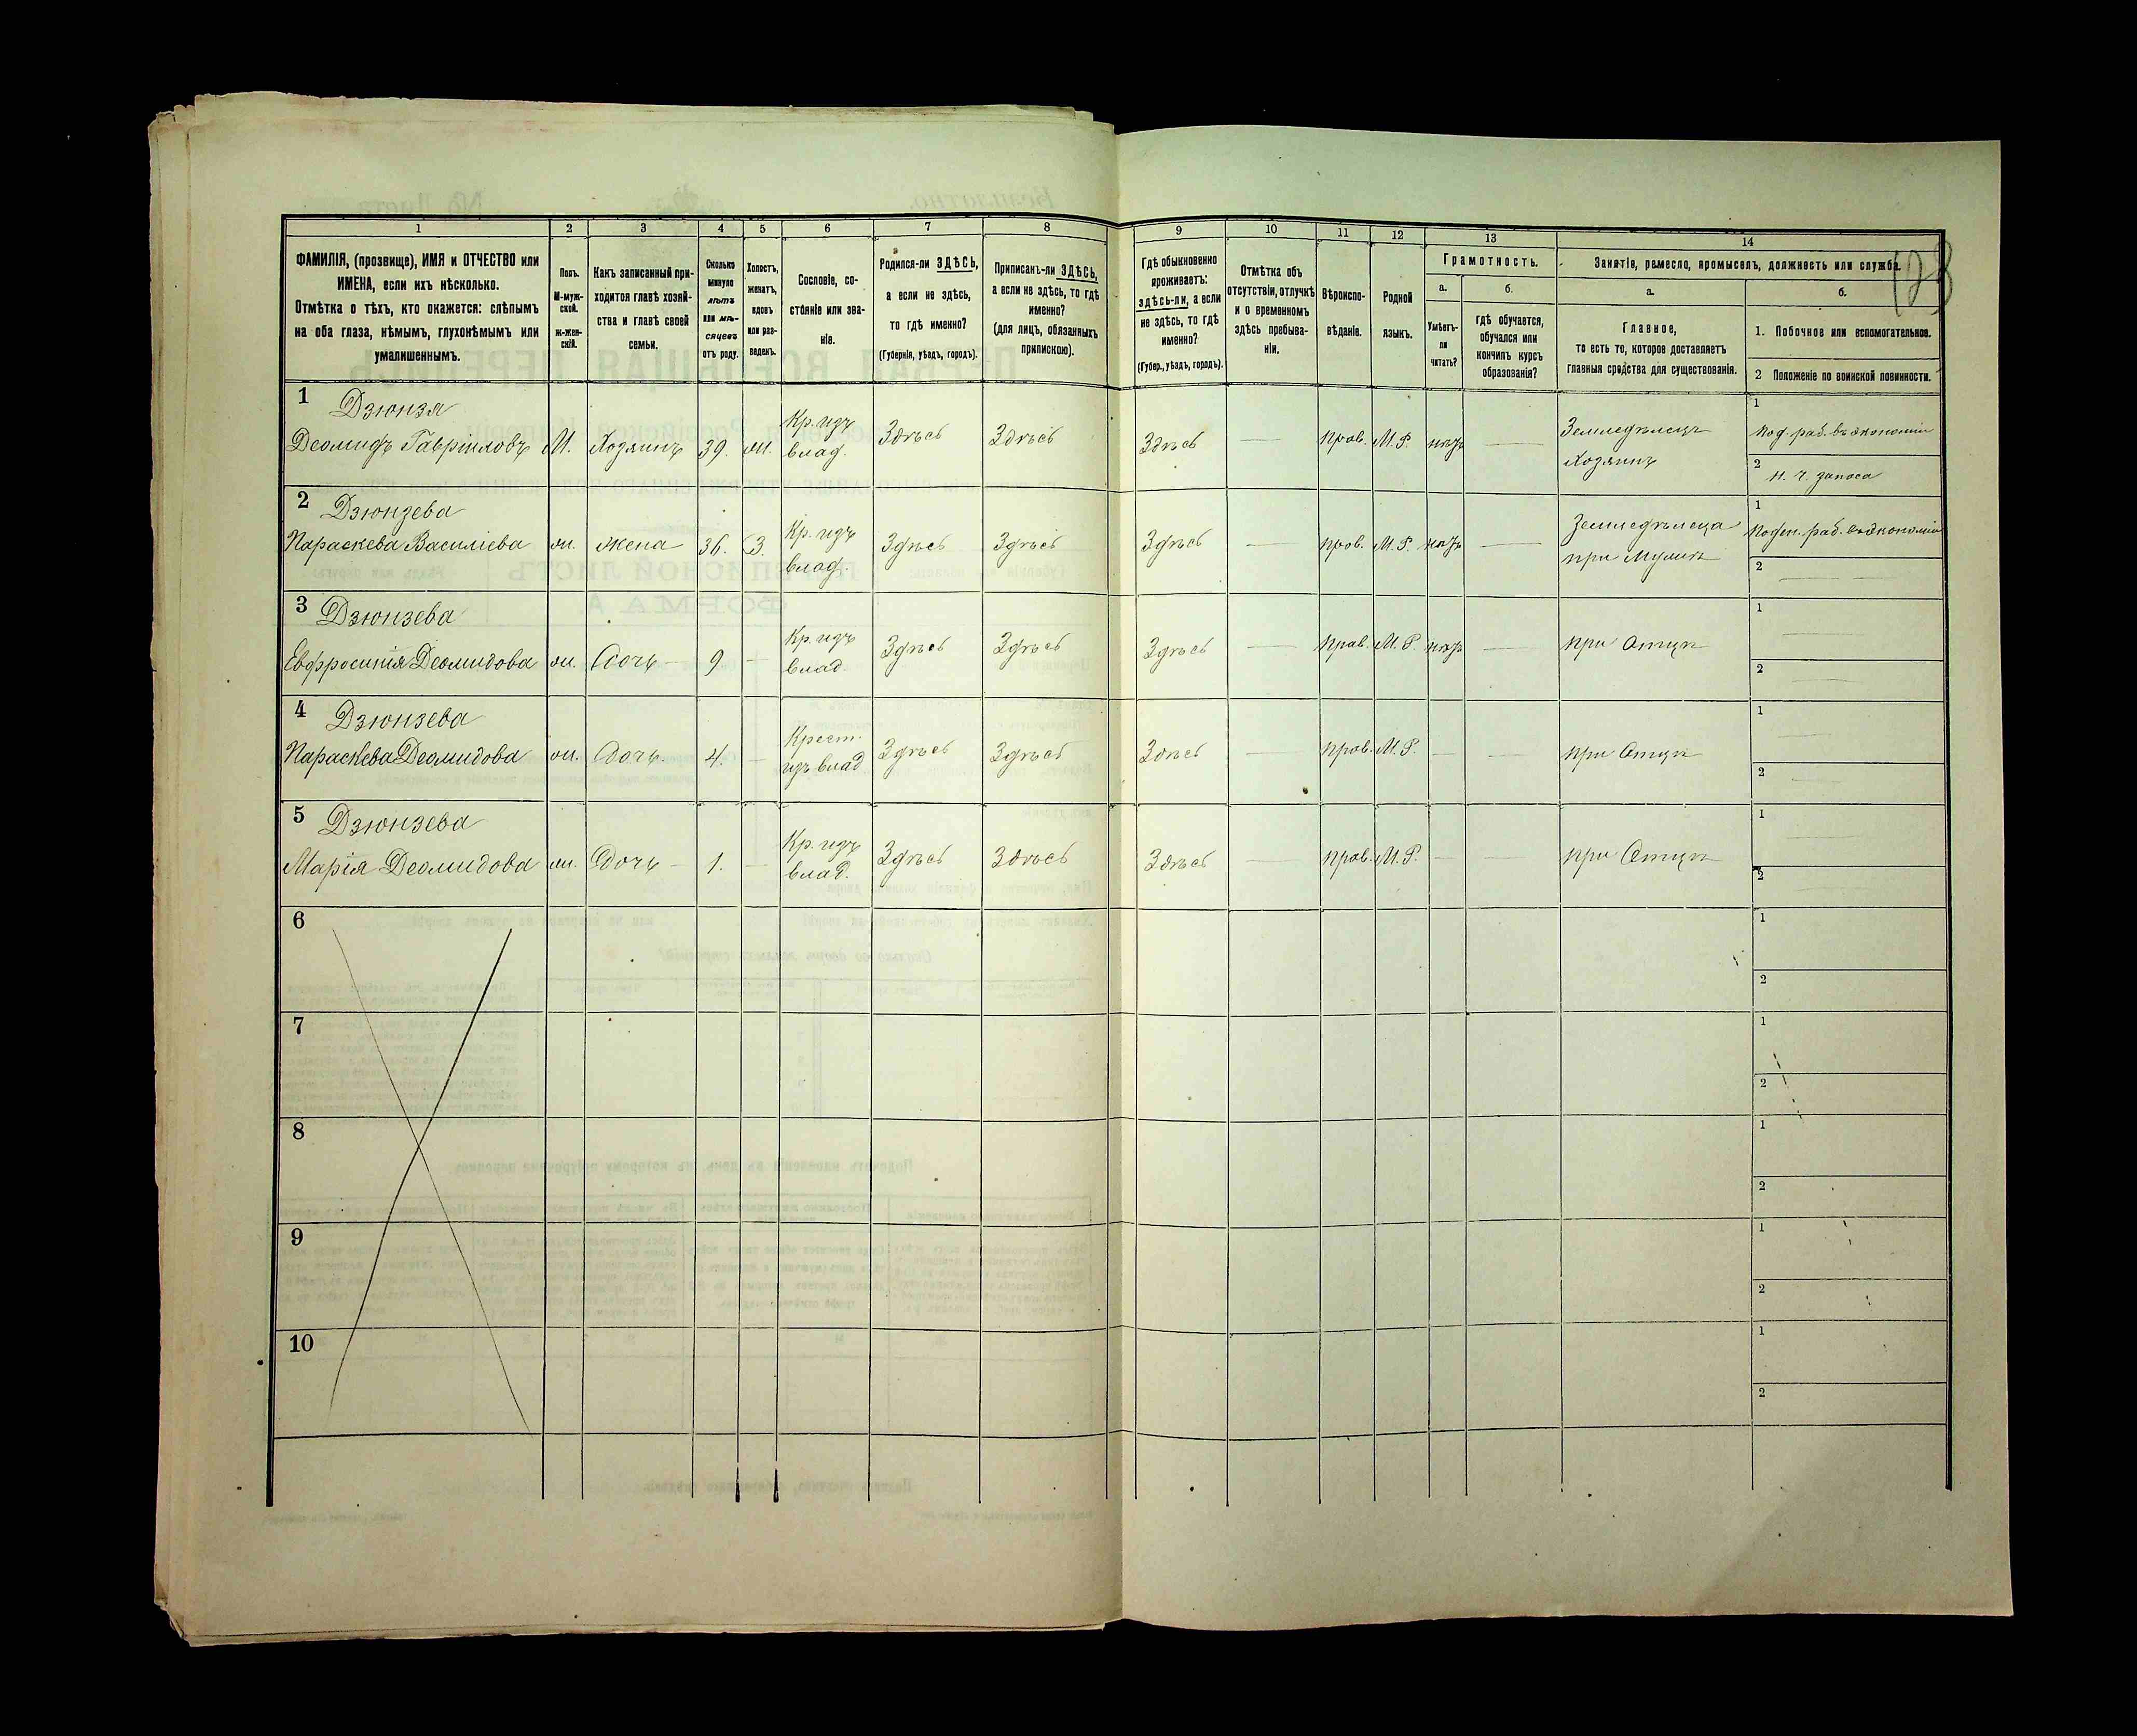 1 2 3 4 5 6 7 8 9 10 11 12 13 14
ФАМИЛІЯ, (прозвище), ИМЯ и ОТЧЕСТВО или
ИМЕНА, если ихъ нѣсколько.
Отмѣтка о тѣхъ, кто окажется: слѣпымъ
на оба глаза, нѣмымъ, глухонѣмымъ или
умалишеннымъ.
Полъ.
М-муж-
ской.
ж-жен-
скій.
Какъ записанный при-
ходится главѣ хозяй-
ства и главѣ своей
семьи.
Сколько
минуло
лѣтъ
или мѣ-
сяцевъ
отъ роду.
Холостъ,
женатъ,
вдовъ
или раз-
веденъ.
Сословіе, со-
стояніе или зва-
ніе.
Родился-ли ЗДѢСЬ,
а если не здѣсь,
то гдѣ именно?
(Губернія, уѣздъ, городъ).
Приписанъ-ли ЗДѢСЬ,
а если не здѣсь, то гдѣ
именно?
(для лицъ, обязанныхъ
припискою).
Гдѣ обыкновенно
проживаетъ:
здѣсь-ли, а если
не здѣсь, то гдѣ
именно?
(Губер., уѣздъ, городъ).
Отмѣтка объ
отсутствіи, отлучкѣ
и о временномъ
здѣсь пребыва-
ніи.
Вѣроиспо-
вѣданіе.
Родной
языкъ.
Грамотность.
а.
Умѣетъ-
ли
читать?
б.
гдѣ обучается,
обучался или
кончилъ курсъ
образованія?
Занятіе, ремесло, промыселъ, должность или служба.
а.
Главное,
то есть то, которое доставляетъ
главныя средства для существованія.
б.
1. Побочное или вспомогательное.
2 Положеніе по воинской повинности.
1 Дзюнзя
Деомидъ Гавріиловъ М. Хозяинъ 39. ж. Кр. изъ влад. Здѣсь Здѣсь Здѣсь — прав. М. Р. нѣтъ — Земледѣлецъ Хозяинъ
1 Под. раб. въ экономіи
2 Н. Ч. запаса
2 Дзюнзева
Параскева Василіева ж. жена 36. З. Кр. изъ влад. Здѣсь Здѣсь Здѣсь — прав. М. Р. нѣтъ — Земледѣлеца при Мужѣ
1 Поден. раб. въ экономіи
2 —
3 Дзюнзева
Евфросинія Деомидова ж. Дочь 9 — Кр. изъ влад. Здѣсь Здѣсь Здѣсь — прав. М. Р. нѣтъ — при Отцѣ
1 —
2 —
4 Дзюнзева
Параскева Деомидова ж. Дочь. 4. — Крест. изъ влад Здѣсь Здѣсь Здѣсь — прав. М. Р. — — при Отцѣ
1 —
2 —
5 Дзюнзева
Марія Деомидова ж. Дочь 1. — Кр. изъ влад. Здѣсь Здѣсь Здѣсь — прав. М. Р. — — при Отцѣ
1 —
2 —
6
1
2
7
1
2
8
1
2
9
1
2
10
1
2